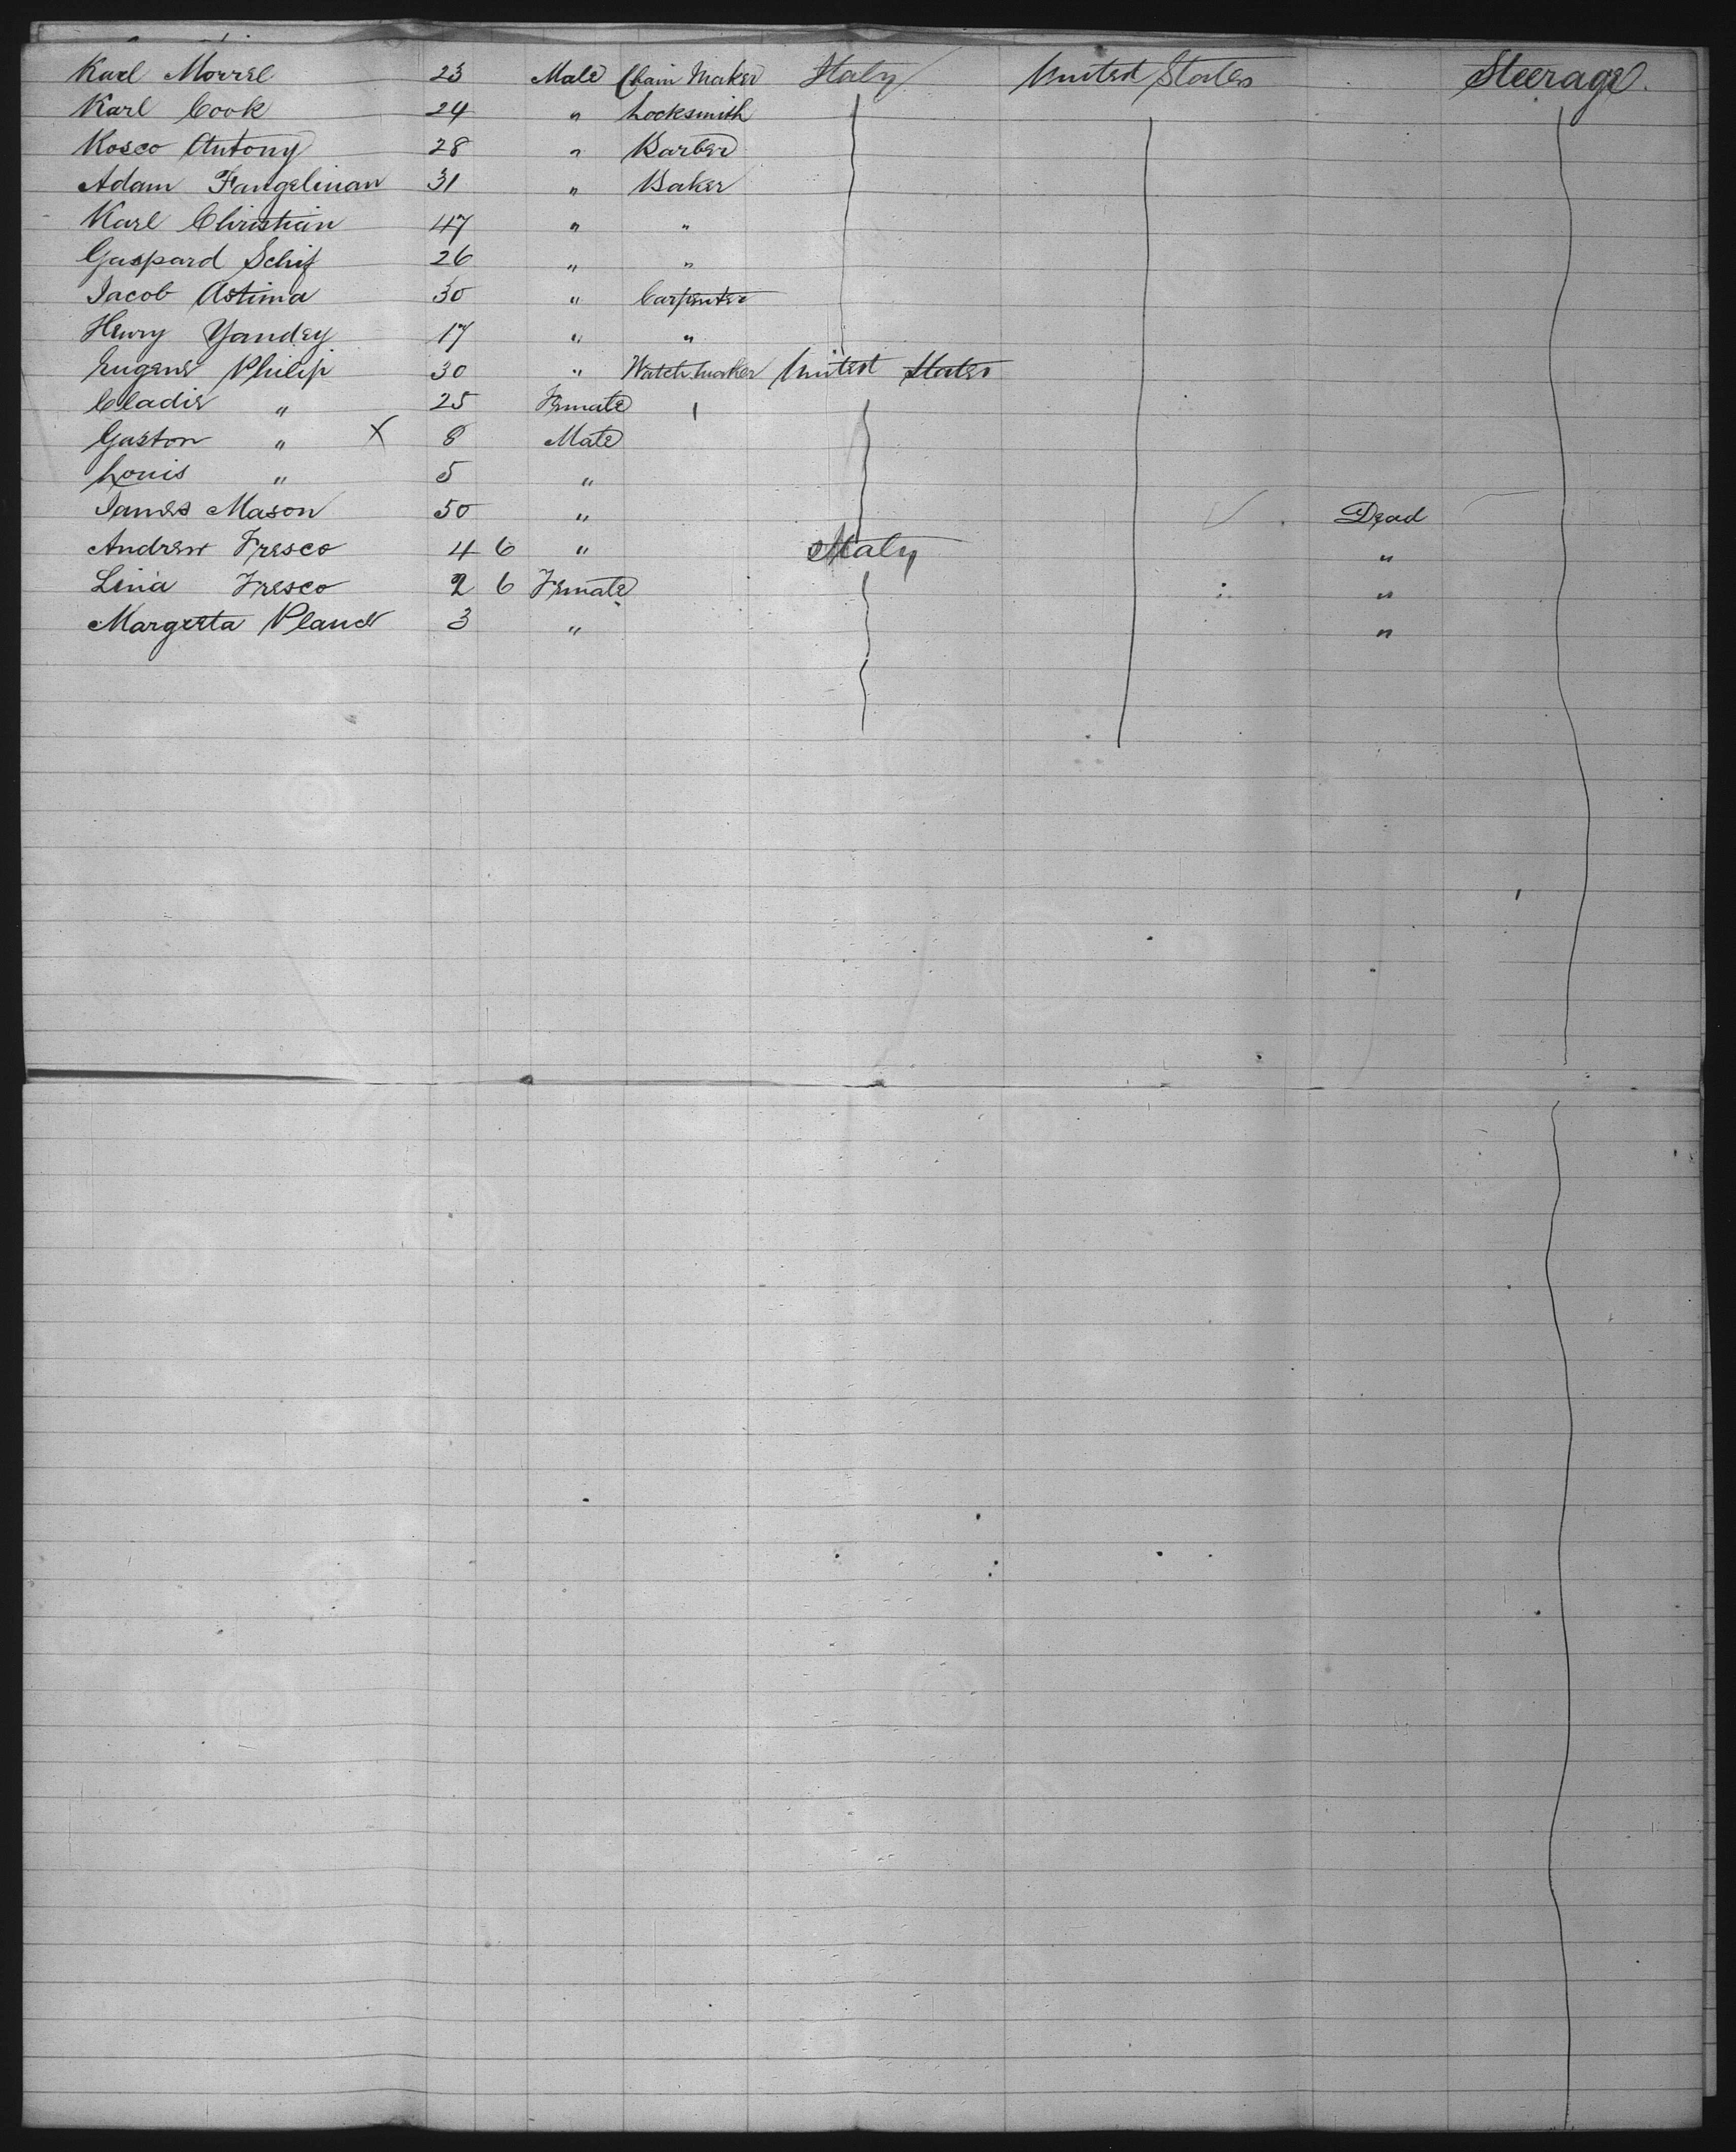 Karl Morrel 23 Male Chain Maker Italy United States Steerage.
Karl Cook 24 " Locksmith
Kosco Antony 28 " Barber
Adam Fangelinan 31 " Baker
Karl Christian 47 " "
Gaspard Schif 26 " "
Jacob Astima 30 " Carpenter
Henry Yandey 17 " "
Eugene Philip 30 " Watch maker United States
Cladie " 25 Female
Gaston " X 8 Male
Louis " 5 "
James Mason 50 " Dead
Andrew Fresco 4 6 " Italy "
Lina Fresco 2 6 Female "
Margretta 3 " "